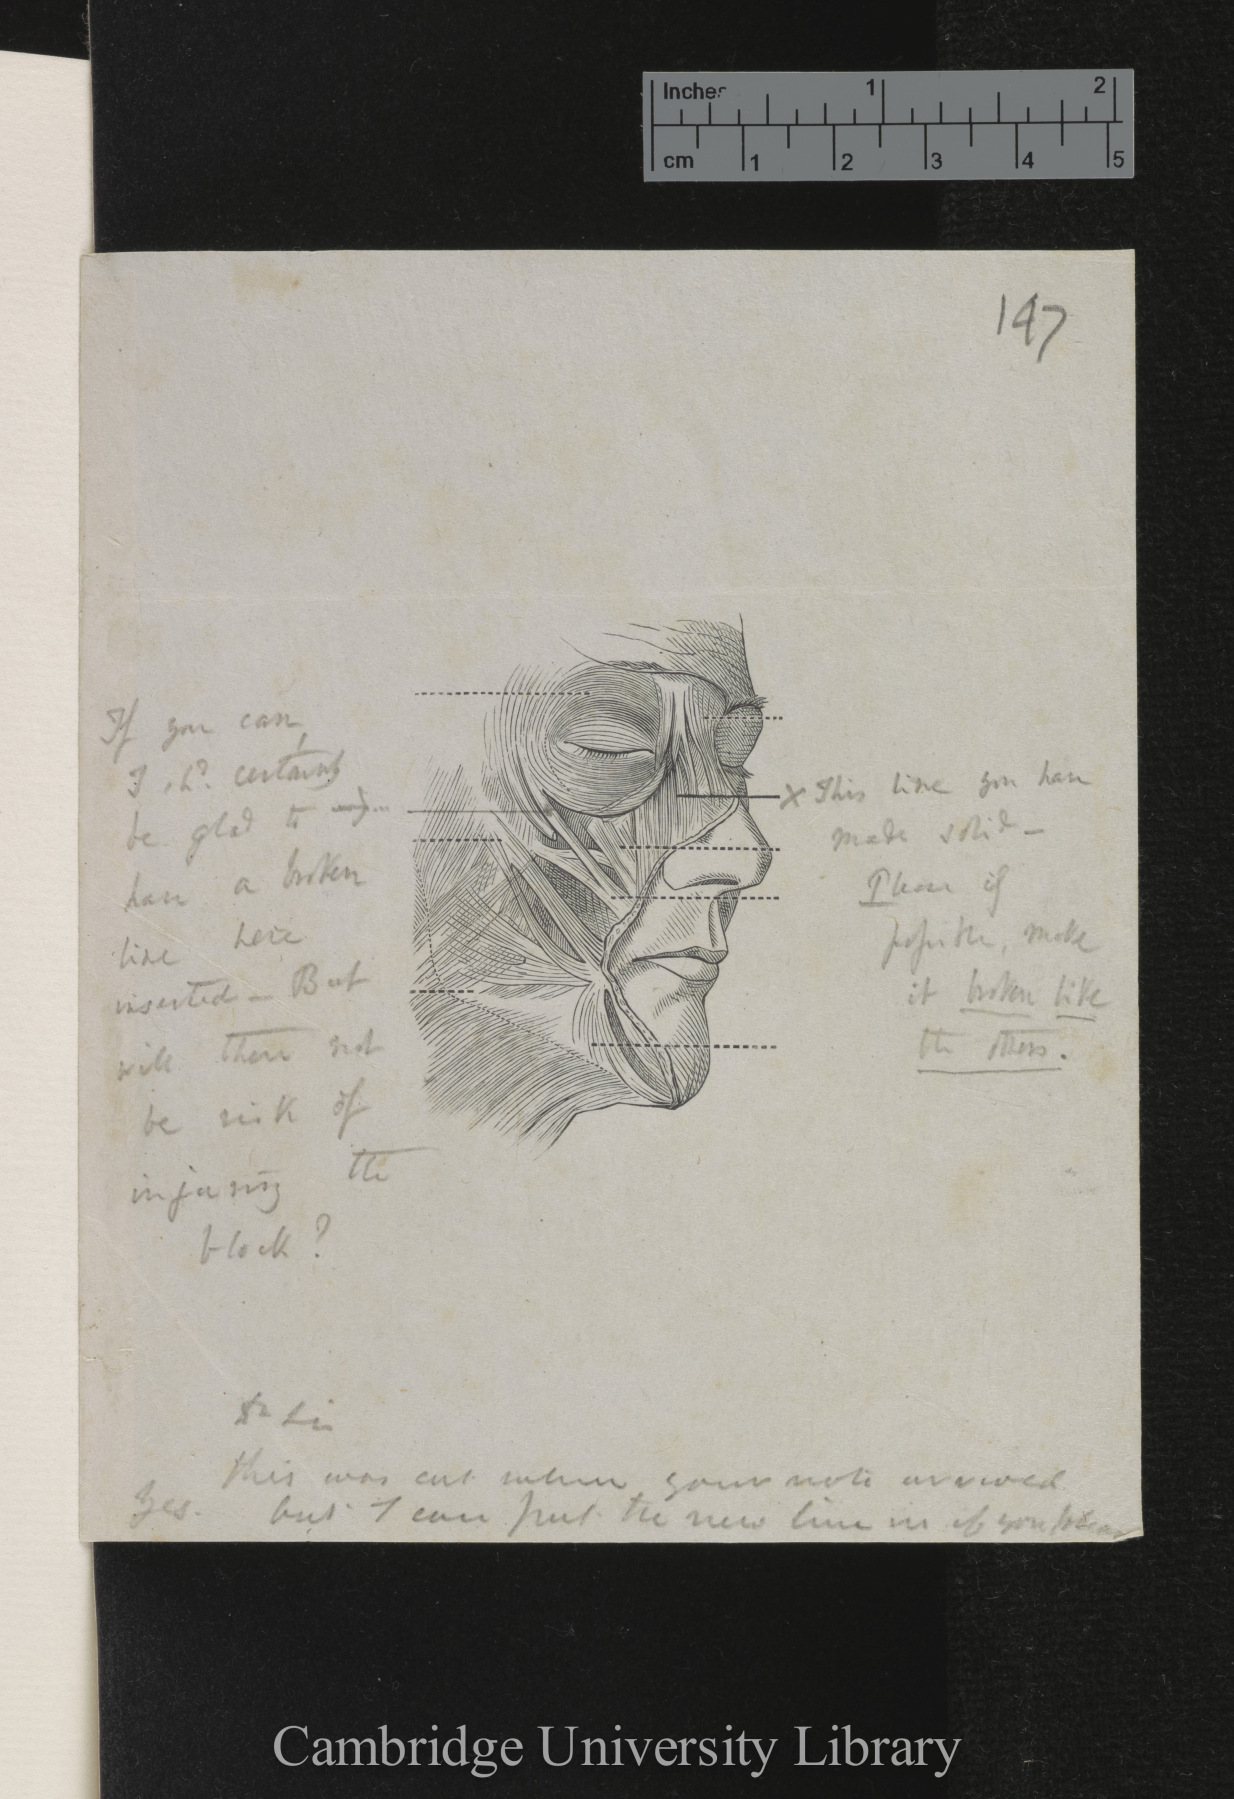 Inches 1 2
cm 1 2 3 4 5
147
If you can,
I shd. certainly
be glad to
have a broken
line here
inserted — But
will there not
be risk of
injuring the
block?
X This line you have
made solid —
Please if
possible, make
it broken like
the others.
Dr Sir
This was cut when your note arrived
Yes. but I can put the new line in if you please
Cambridge University Library